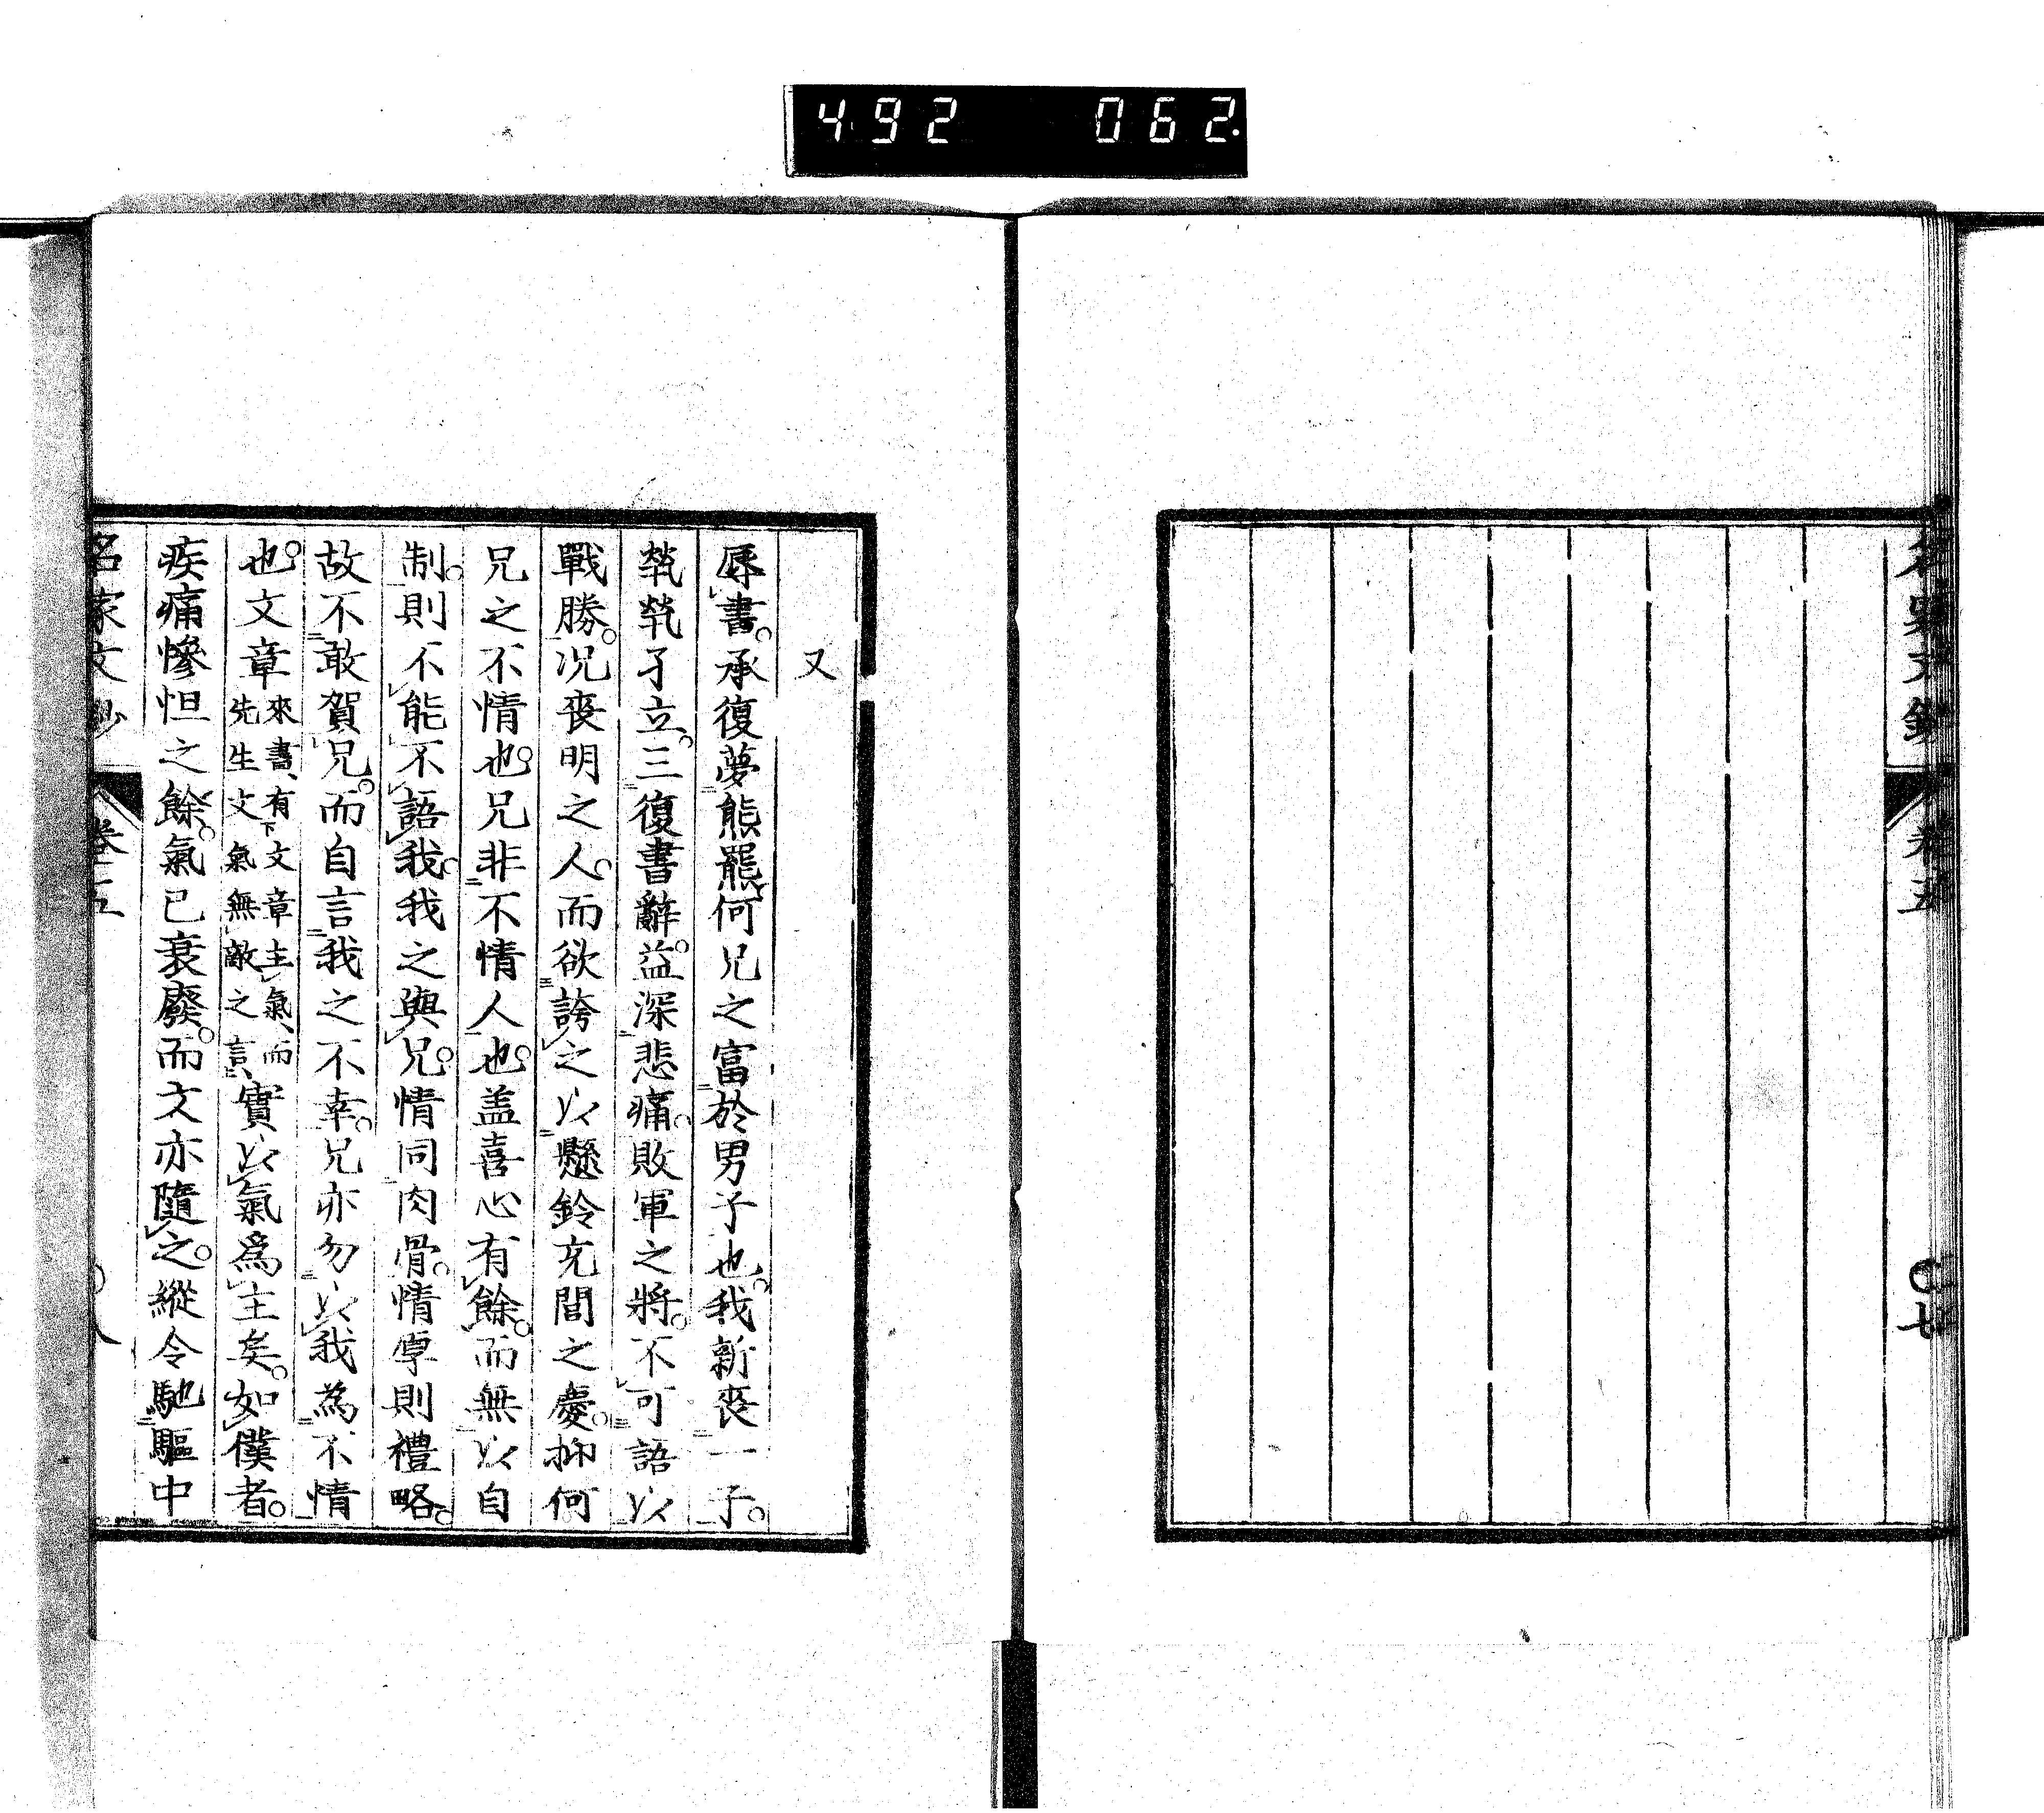 492 062.
名家文鈔 卷五 〇七
又
辱書。承復夢熊羆。何兄之富於男子也。我新喪一子。
煢煢孑立。三復書辭。益深悲痛。敗軍之將。不可語以
戰勝。况喪明之人。而欲誇之以懸鈴充閭之慶。抑何
兄之不情也。兄非不情人也。盖喜心有餘。而無以自
制。則不能不語我。我之與兄。情同肉骨。情厚則禮略。
故不敢賀兄。而自言我之不幸。兄亦勿以我為不情
也。文章來書、有下文章主氣、而先生文氣無敵之言、實以氣爲主矣。如僕者。
疾痛慘怛之餘。氣已衰廢。而文亦隨之。縱令馳驅中
名家文鈔 卷五 〇八